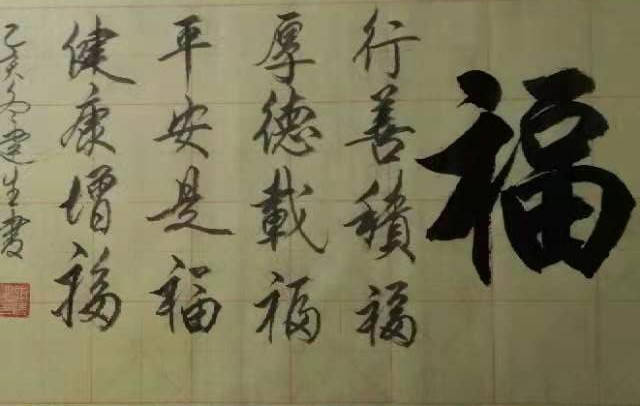 福
行善積福
厚德載福
平安是福
健康增福
乙亥冬建生書